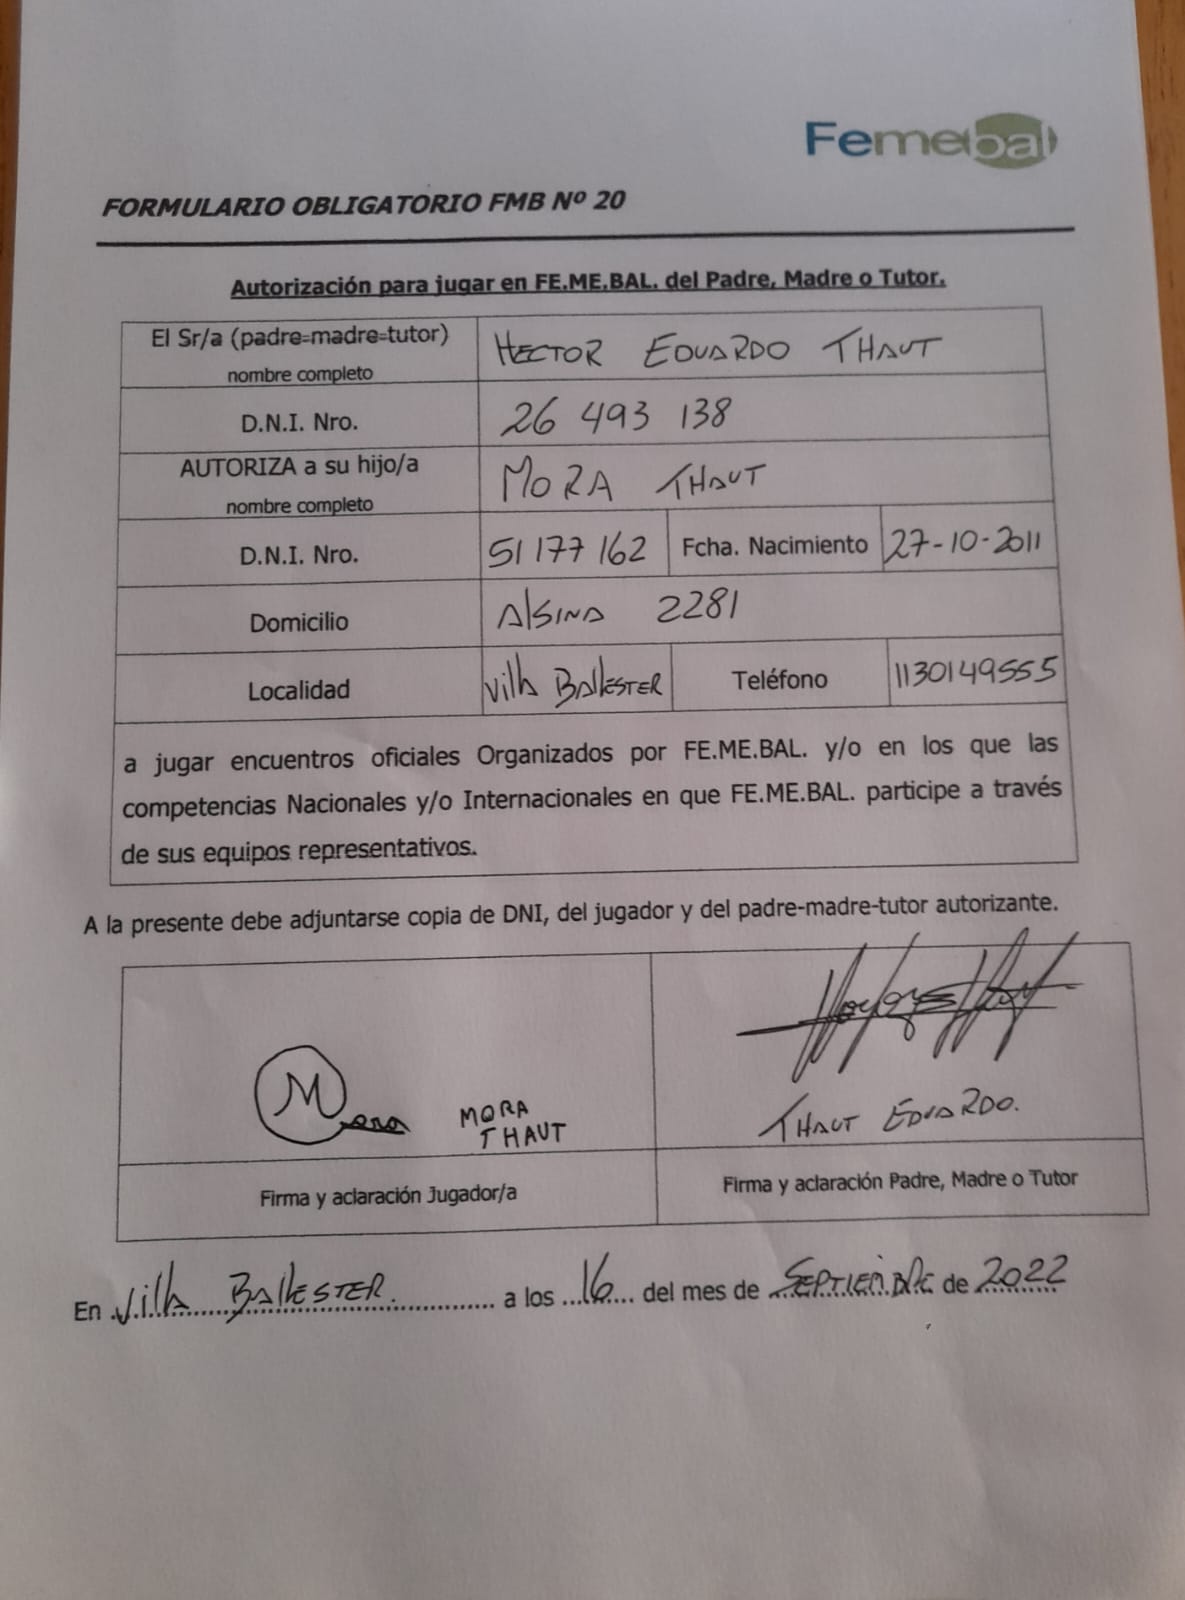 Femebal
FORMULARIO OBLIGATORIO FMB Nº 20
Autorización para jugar en FE.ME.BAL. del Padre, Madre o Tutor.
El Sr/a (padre-madre-tutor)
nombre completo
HECTOR EDUARDO THAUT
D.N.I. Nro.
26 493 138
AUTORIZA a su hijo/a
nombre completo
MORA THAUT
D.N.I. Nro.
51 177 162
Fcha. Nacimiento
27-10-2011
Domicilio
Alsina 2281
Localidad
Villa Ballester
Teléfono
1130149555
a jugar encuentros oficiales Organizados por FE.ME.BAL. y/o en los que las
competencias Nacionales y/o Internacionales en que FE.ME.BAL. participe a través
de sus equipos representativos.
A la presente debe adjuntarse copia de DNI, del jugador y del padre-madre-tutor autorizante.
Mora
MORA
THAUT
THAUT EDUARDO.
Firma y aclaración Jugador/a
Firma y aclaración Padre, Madre o Tutor
En Villa Ballester. a los 16 del mes de Septiembre de 2022